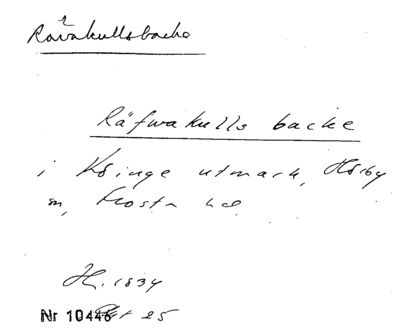 Rävakullsbacke
Räfwakulls backe
i Köinge utmark, Hörby
sn, Frosta hd
H. 1834
Nr 10446 25